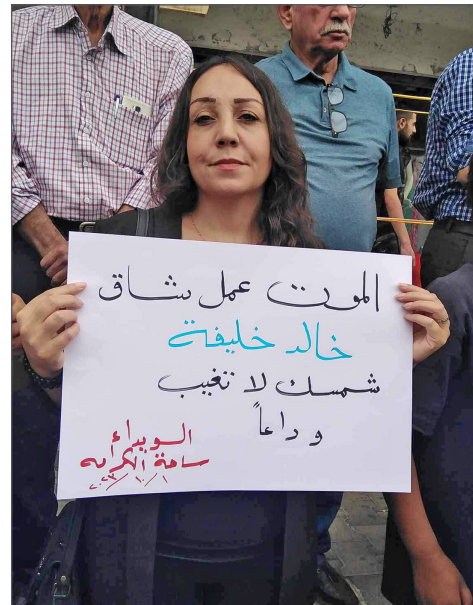 الموت عمل شاق
خالد خليفة
شمسك لا تغيب
وداعاً
السويداء
ساحة الكرامه
٢٠٢٣/١٠/١